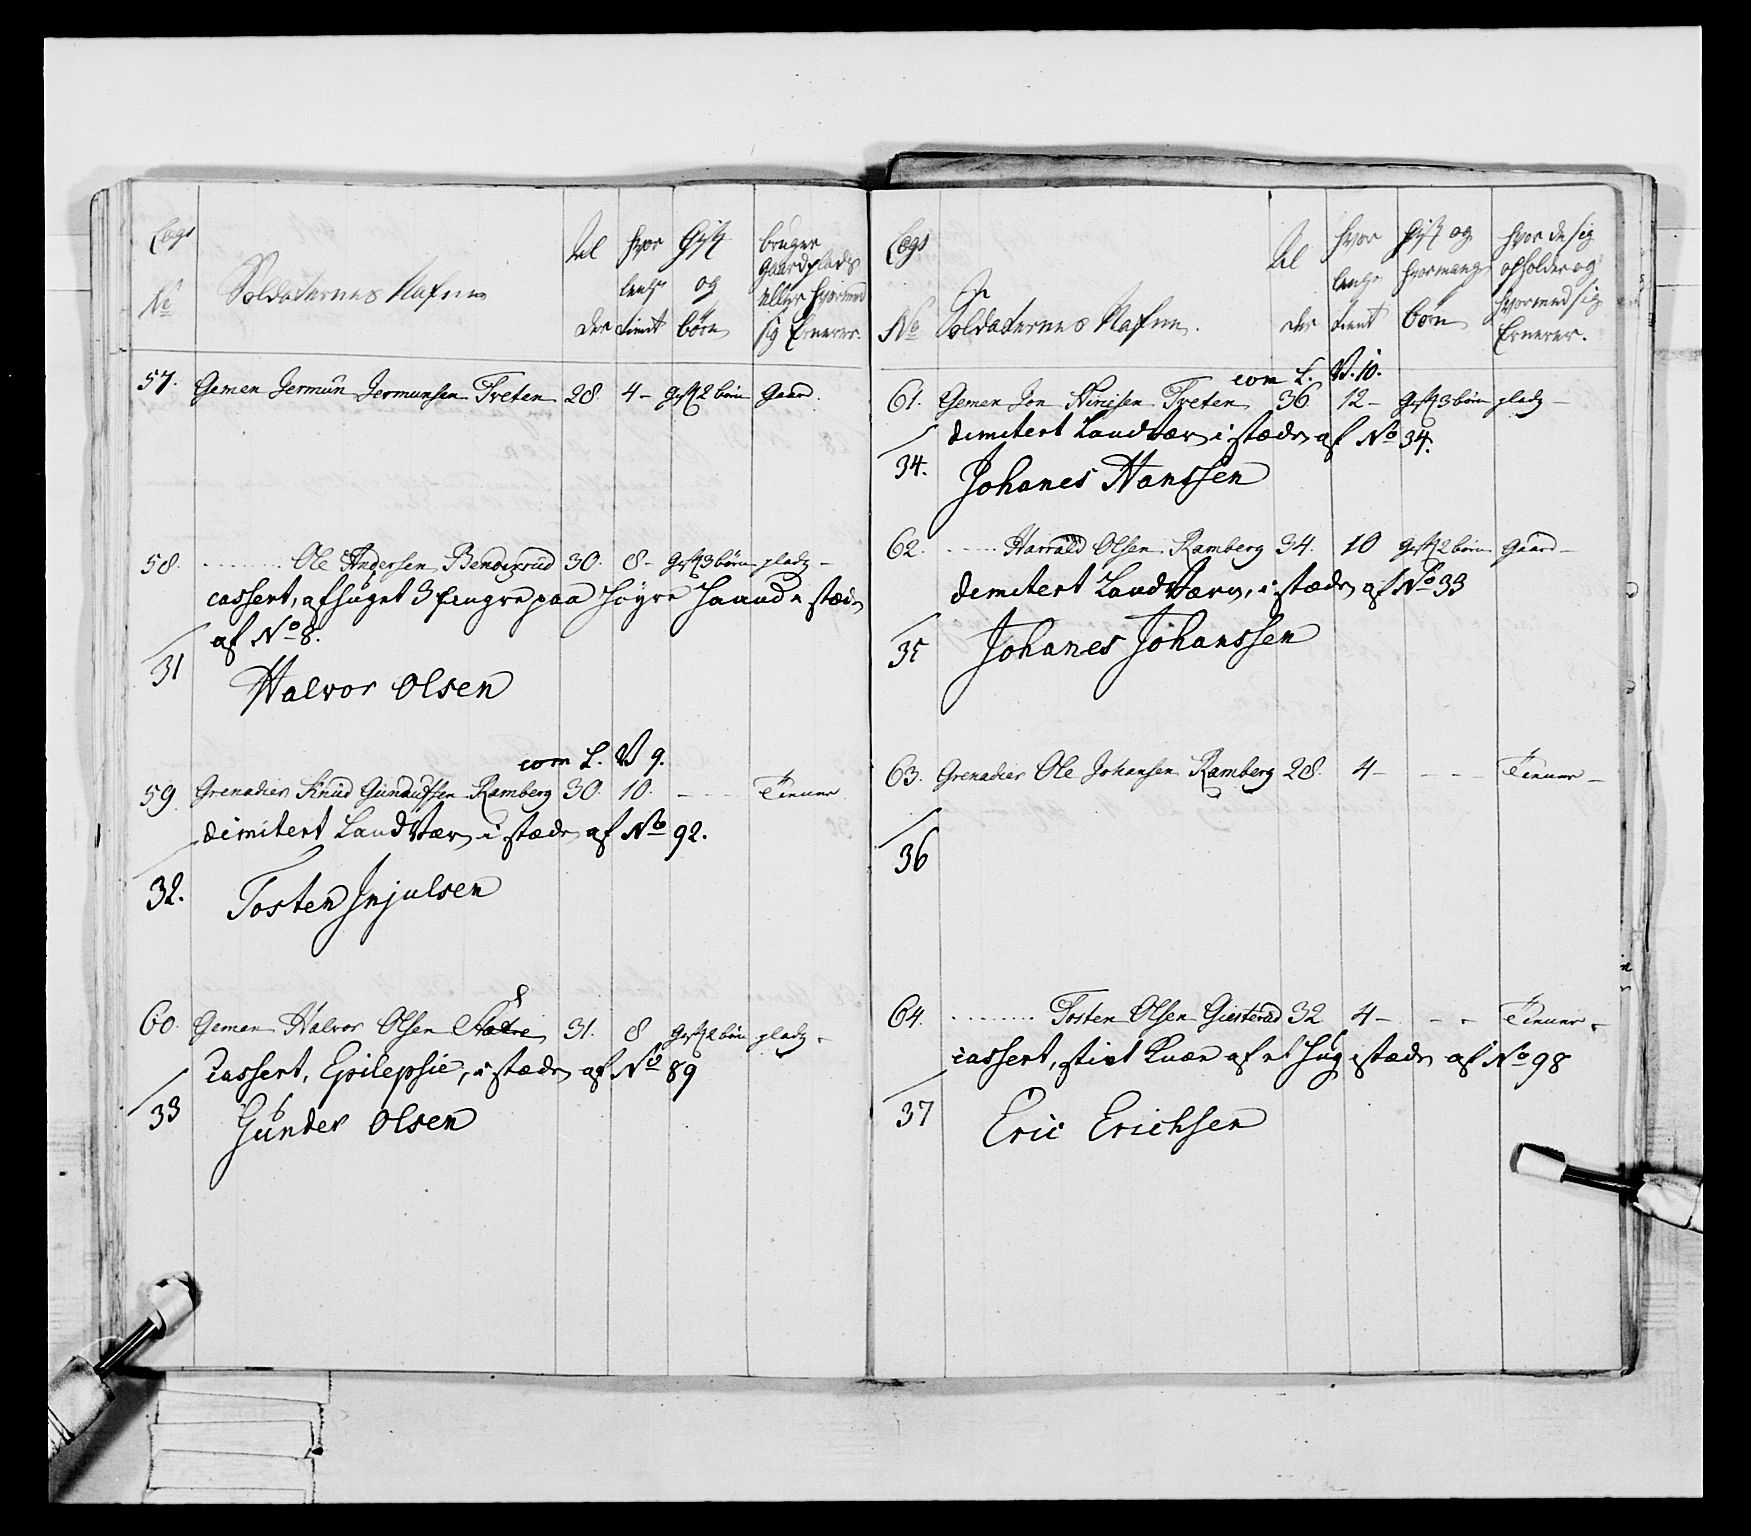 Legs No Soldaternes Nafne Al der hvor lenge tient Gift og børn bruger gaard plads eller hvormed sig Ernerer.
57. Gemen Jermun Jermunsen Treten 28. 4- gift 2 børn gaard.
58. Ole Andersen Bendixrud 30. 8- gift 3 børn plads -
cassert, afhuget 3 fingre paa høyre Haand i stæden
af No 8.
31 Halvor Olsen
com L. V 9.
59. Grenadier Knud Gundufsen Ramberg 30. 10. - Tiener
dimitert Landværn i stæden af No 92.
32. Tosten Injulsen
60. Gemen Halvor Olsen 31. 8 gift 2 børn plads -
Cassert, Epilepsie, i stæden af No 89
33 Gunder Olsen
Legs No Soldaternes Nafne. Al der hvor lenge tient gift og hvormange børn hvor de sig opholder og hvormed sig Ernerer.
com L. V. 10.
61. Gemen Jon Treten 36 12- gift 3 børn plads -
dimitert Landværn i stæden af No 34.
34. Johanes Hanssen
62. Harrald Olsen Ramberg 34. 10 gift 2 børn gaard -
dimitert Landværn, i stæden af No 33
35 Johanes Johanssen
63. Grenadier Ole Johansen Ramberg 28. 4- - - - Tiener -
36
64. Tosten Olsen Giesterud 32 4- - - Tiener -
cassert, stivt Knæ af et hug i stæden af No 98
37 Eric Erichsen